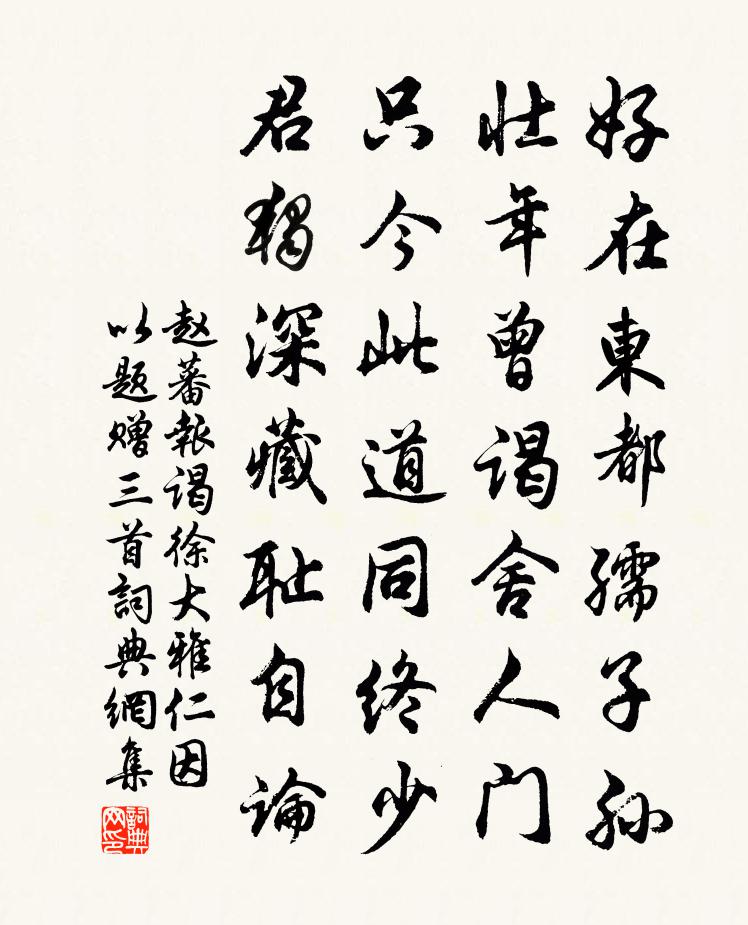 好在東都孺子孙
壮年曾谒舍人门
只今此道同终少
君独深藏耻自论
赵蕃報谒徐大雅仁因
以题赠三首詞典網集
詞典
网印